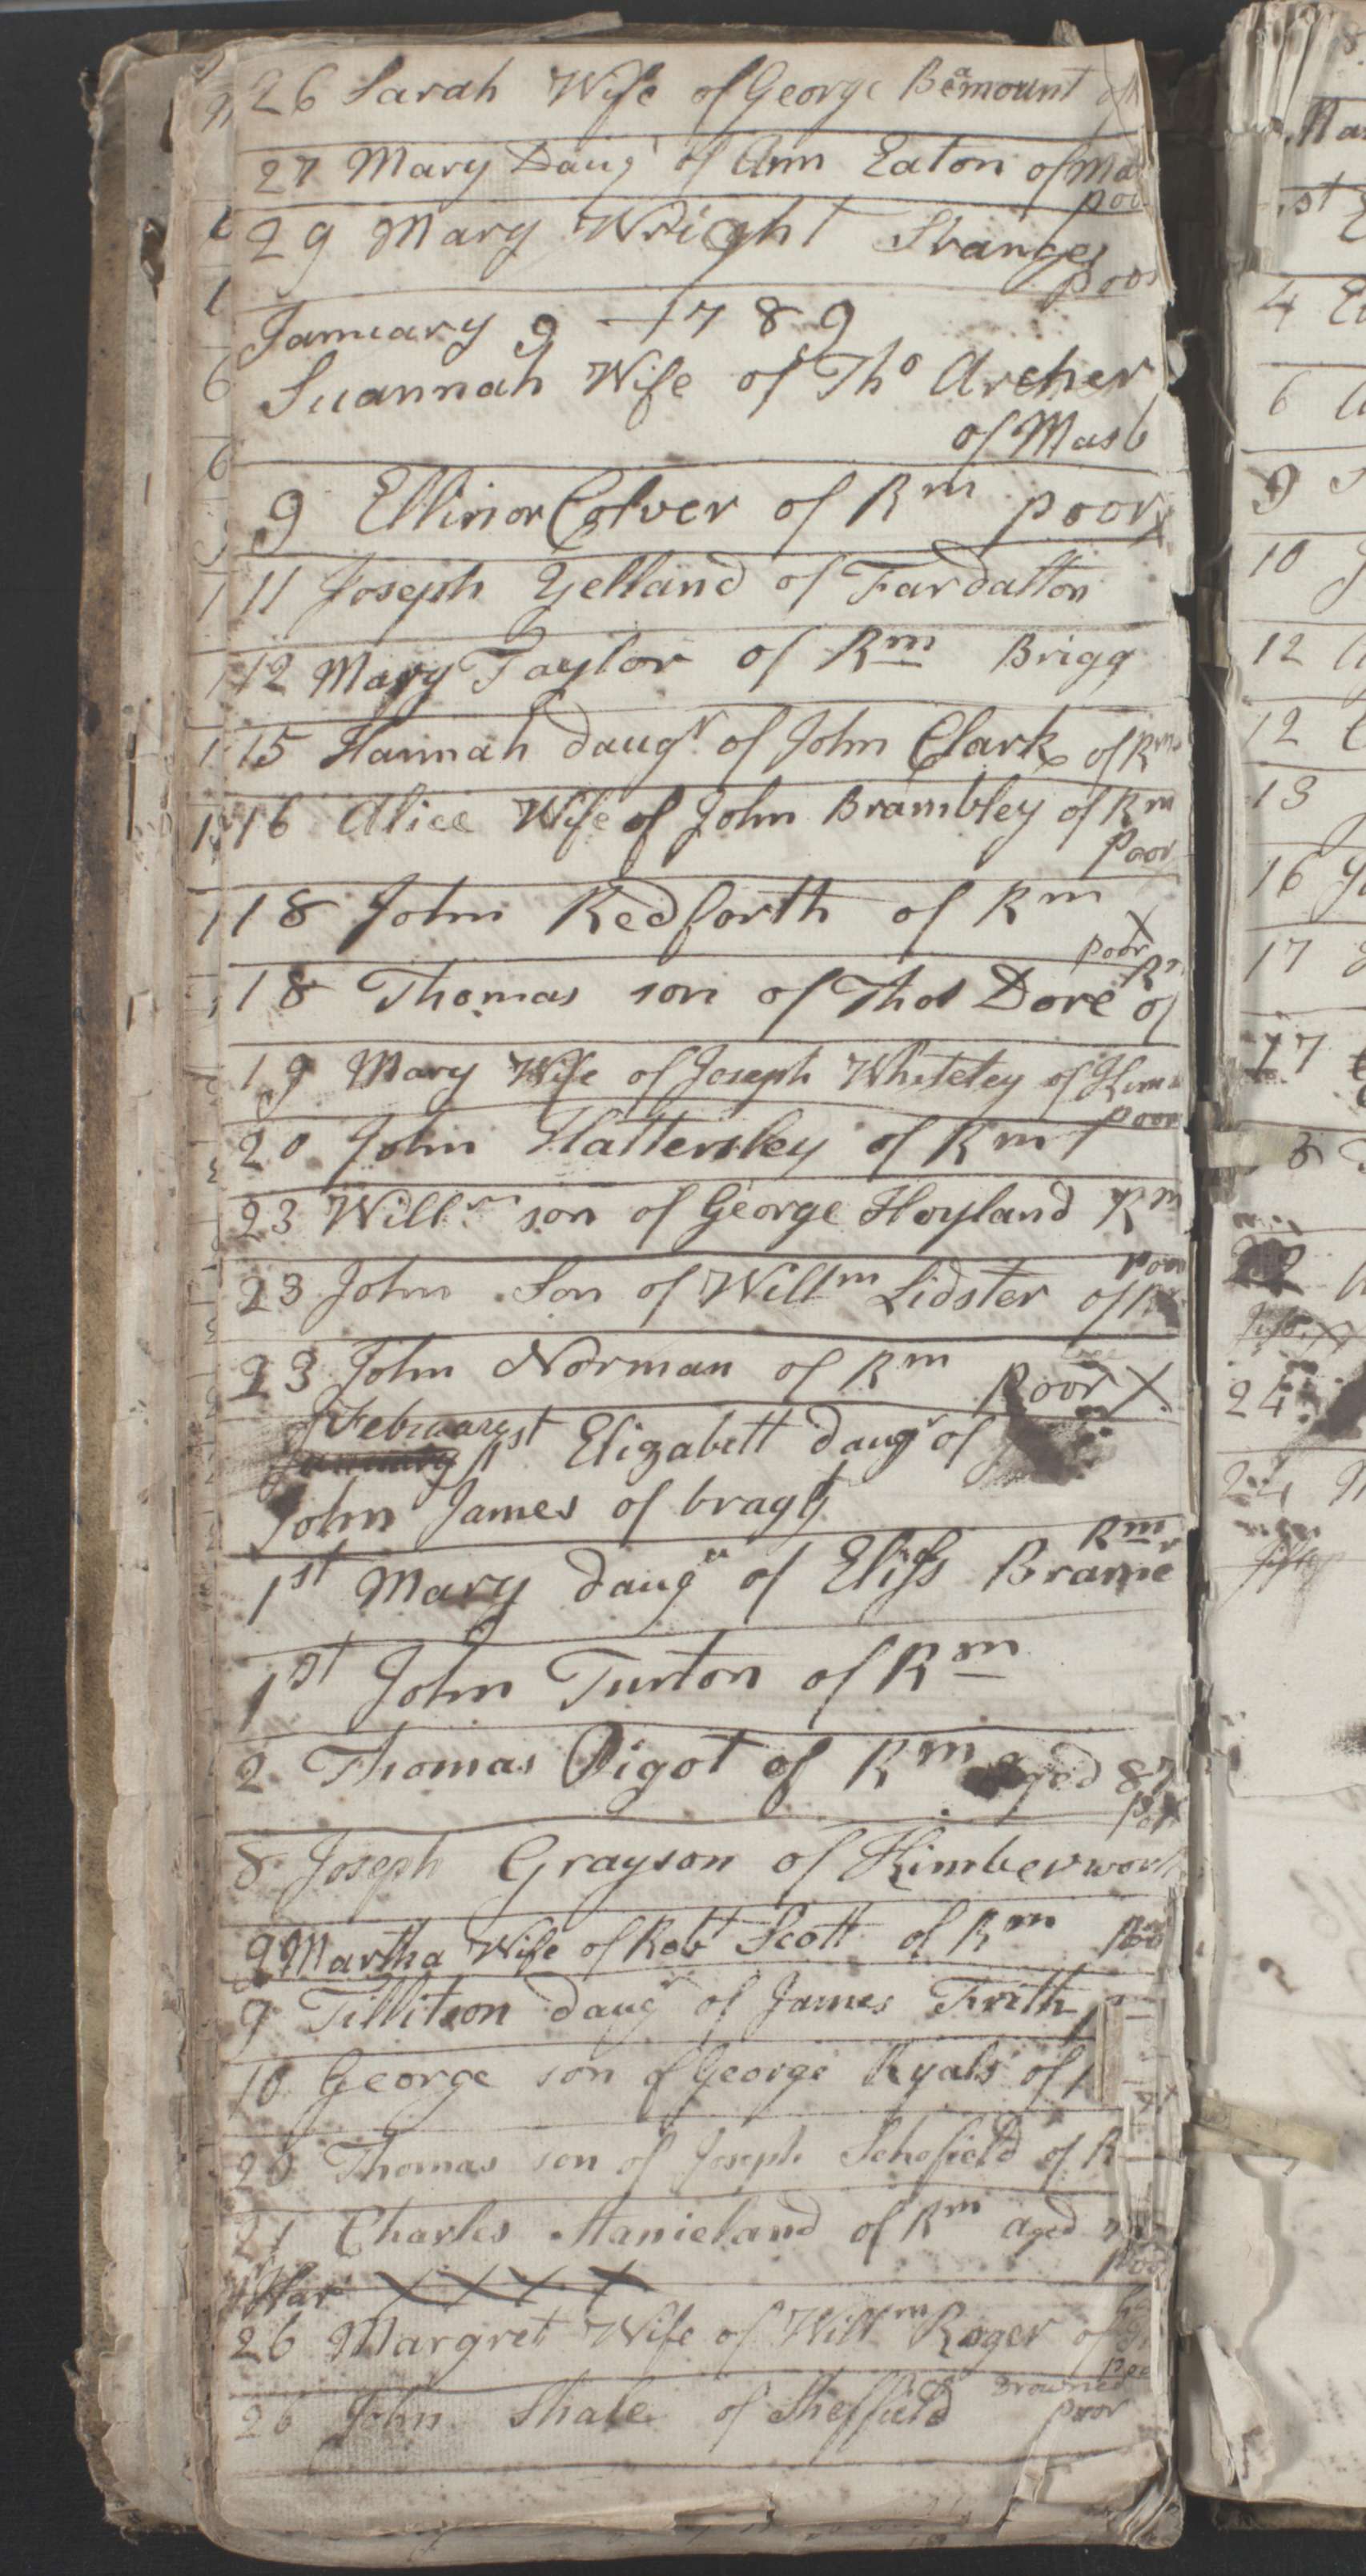 26 Sarah Wife of George Beamount of
27 Mary Daugr of Ann Eaton of Ma
poo
29 Mary Wright Stranger
poor
January 9 - 1789
Suannah Wife of Tho Archer
of Masb
9 Ellinor Colver of Rm poor X
11 Joseph Yelland of Fardalton
12 Mary Taylor of Rm Brigg
15 Hannah daugr of John Clark of Rm
16 Alice Wife of John Brambley of Rm
Poor
18 John Redforth of Rm
poor X
18 Thomas son of Thos Dore of Rm
19 Mary Wife of Joseph Whiteley of Kim
poor
20 John Hattersley of Rm
23 Willm son of George Hoyland Rm
poor
23 John Son of Willm Lidster of R
23 John Norman of Rm poor X
February
January 1st Elizabett daugr of
John James of bragt
Rm
1st Mary daugr of Eliss Bramer
1st John Turton of Rm
2 Thomas Pigot of Rm aged 87
8 Joseph Grayson of Kimberwort
9 Martha Wife of Robt Scott of Rm Poor
9 Tillitson daugr of James Frith
10 George son of George Ryals of
20 Thomas son of Joseph Schofield of R
21 Charles Stanieland of Rm aged
Poo
War X X X X
26 Margret Wife of Willm Roger of
Poo
26 John Shale of Sheffield Drowned
poor
Ma
st
4
6
9
10
12
12
13
16
17
17
8
24
24